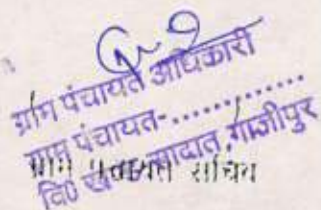 ग्राम पंचायत अधिकारी
ग्राम पंचायत-.............
वि० ख० सादात, गाजीपुर
ग्राम पंचायत सचिव